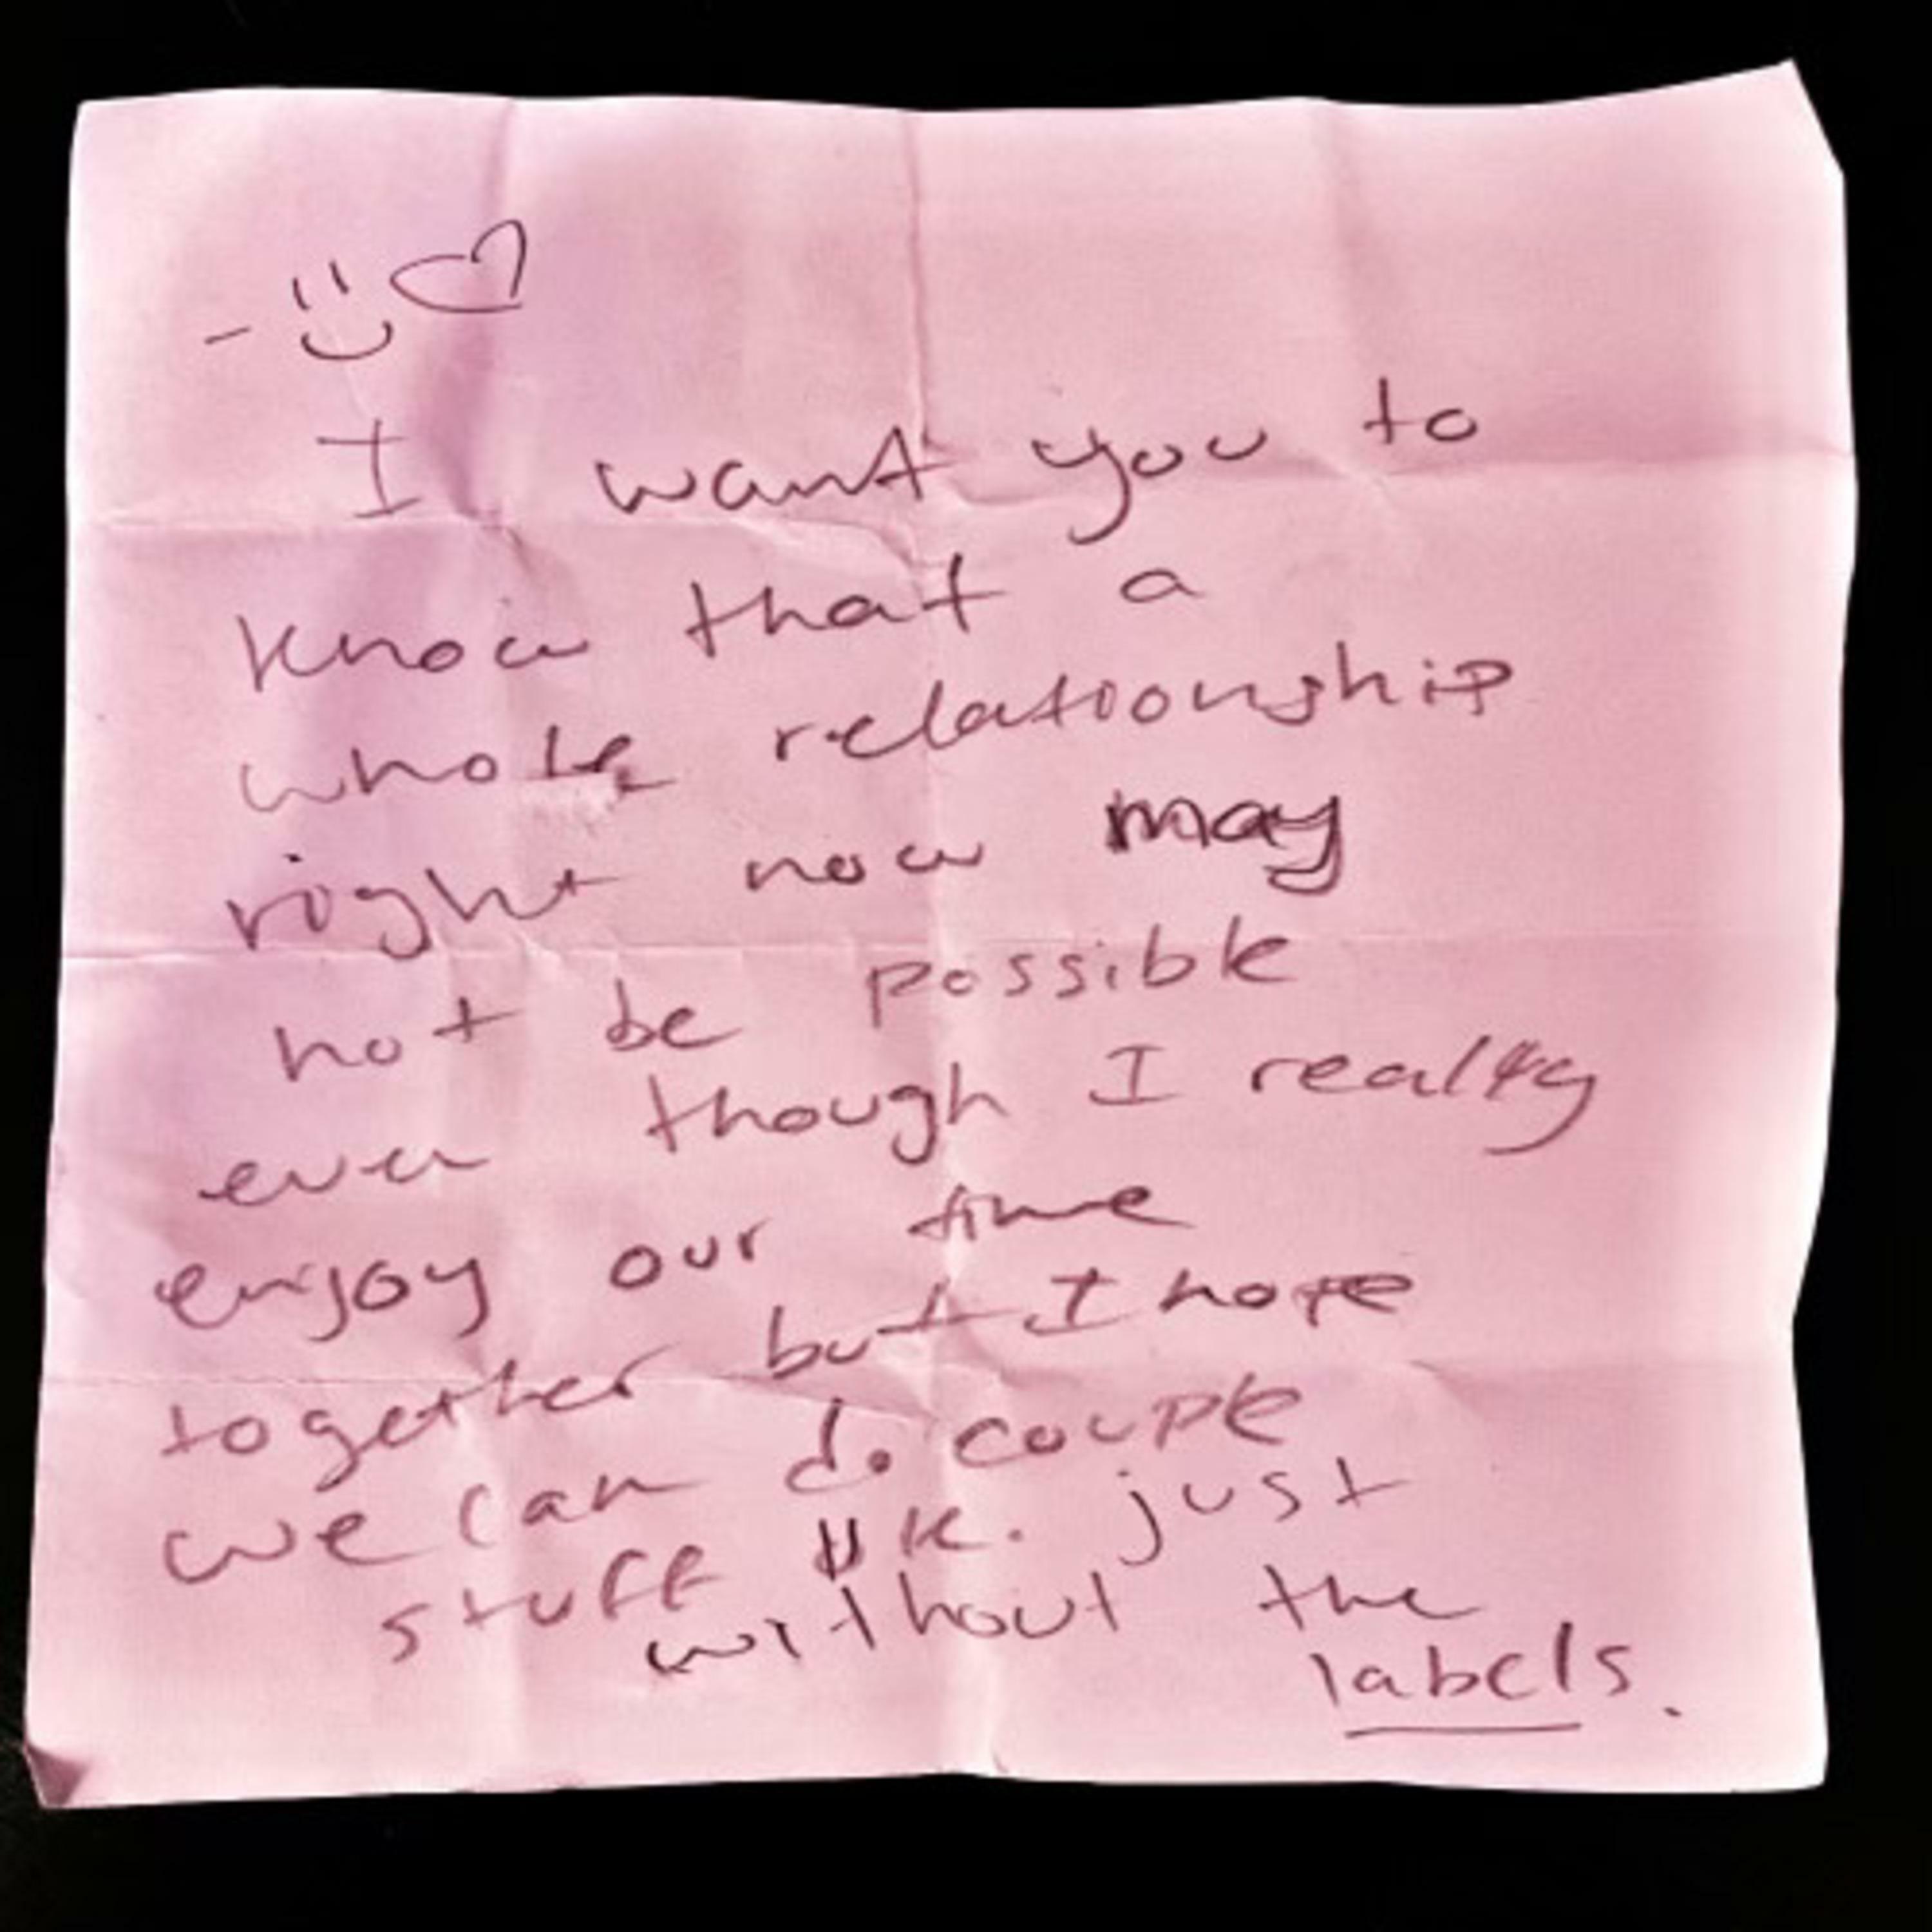 I want you to
know that a
whole relationship
right now may
not be possible
even though I really
enjoy our time
together but I hope
we can do couple
stuff  . just
without the
labels.